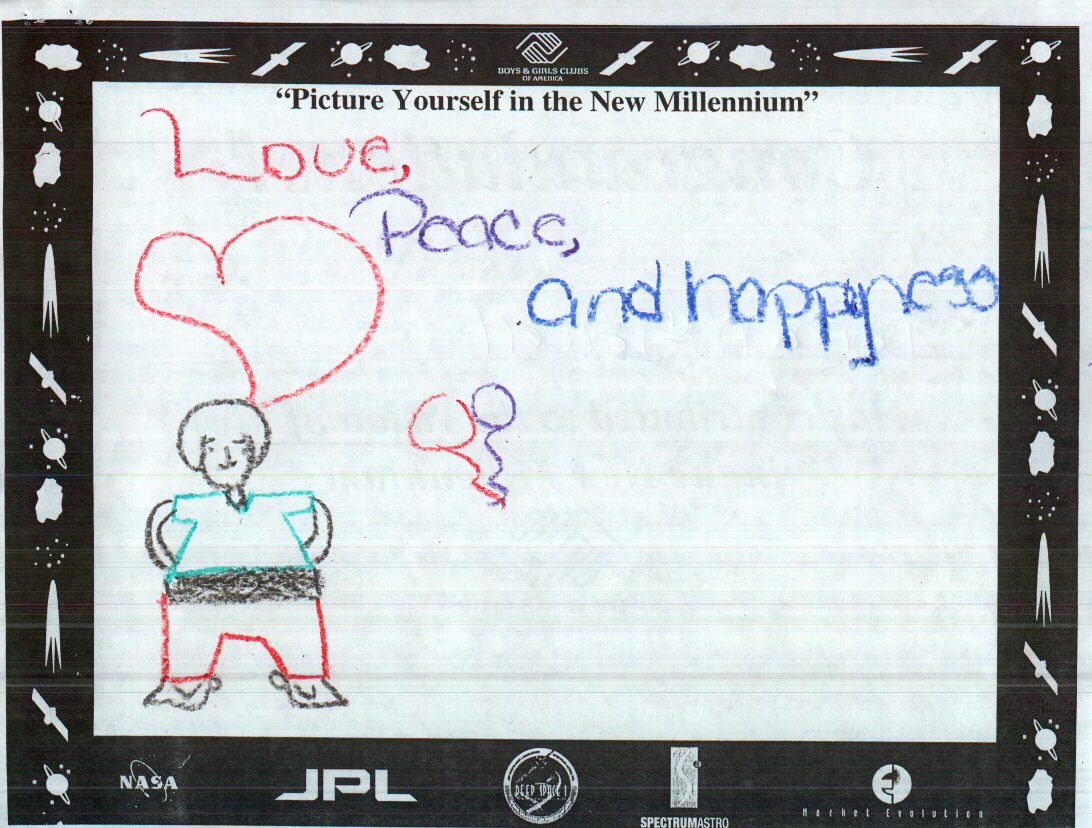 BOYS & GIRLS CLUBS
OF AMERICA
"Picture Yourself in the New Millennium"
Love,
Peace,
and happyness
NASA
JPL
DEEP SPACE 1
SPECTRUMASTRO
Market Evolution